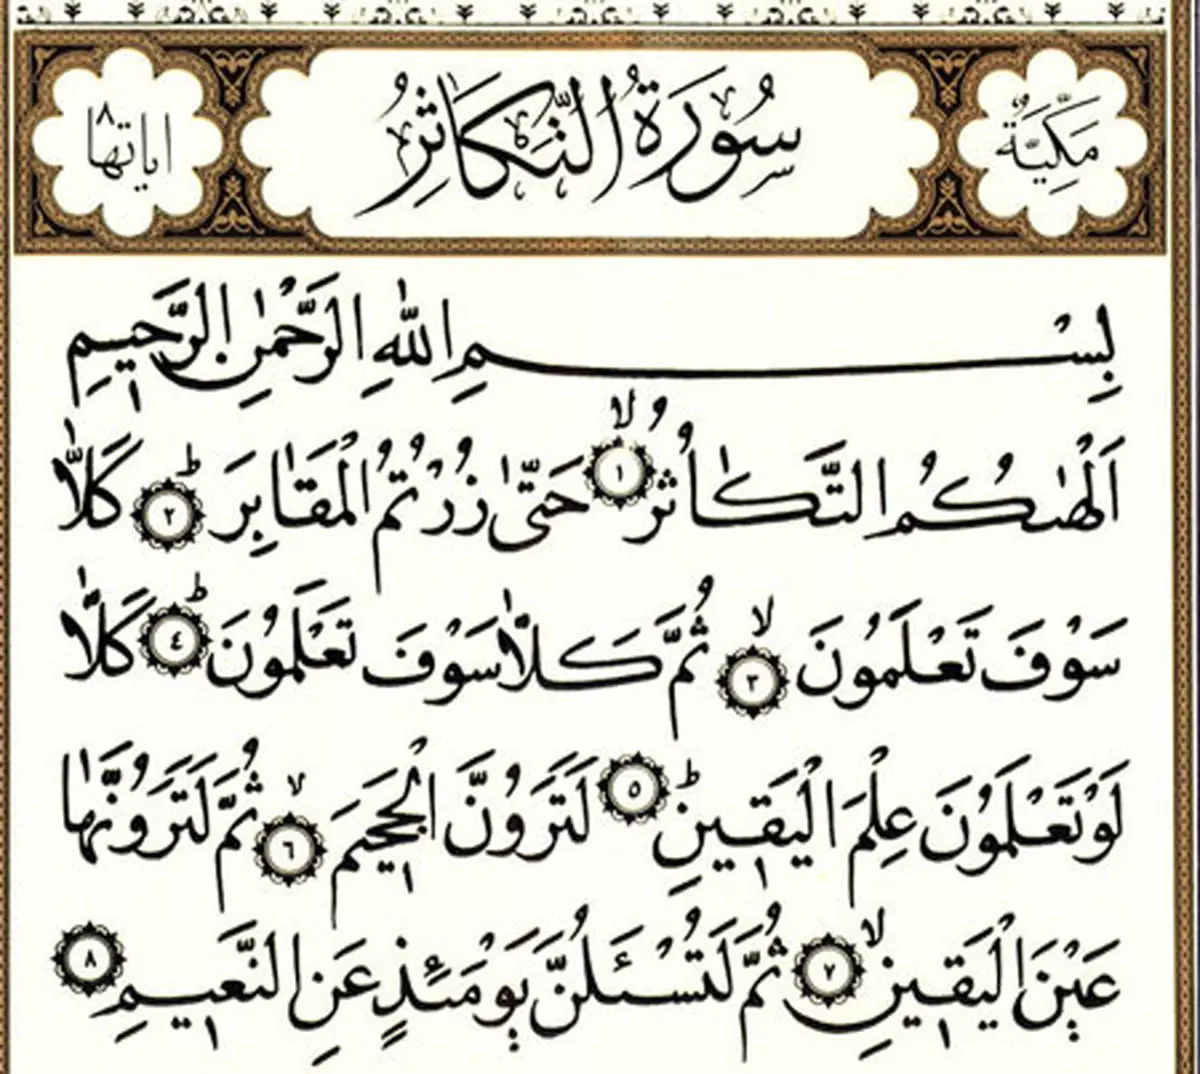 مَكِّيَّةٌ سُورَةُ التَّكَاثُرِ اياتها ٨
بِسْمِ اللّٰهِ الرَّحْمٰنِ الرَّحٖيمِ
اَلْهٰىكُمُ التَّكَاثُرُۙ ١ حَتّٰى زُرْتُمُ الْمَقَابِرَۜ ٢ كَلَّا
سَوْفَ تَعْلَمُونَۙ ٣ ثُمَّ كَلَّا سَوْفَ تَعْلَمُونَۜ ٤ كَلَّا
لَوْ تَعْلَمُونَ عِلْمَ الْيَقٖينِۜ ٥ لَتَرَوُنَّ الْجَحٖيمَۙ ٦ ثُمَّ لَتَرَوُنَّهَا
عَيْنَ الْيَقٖينِۙ ٧ ثُمَّ لَتُسْـَٔلُنَّ يَوْمَئِذٍ عَنِ النَّعٖيمِ ٨